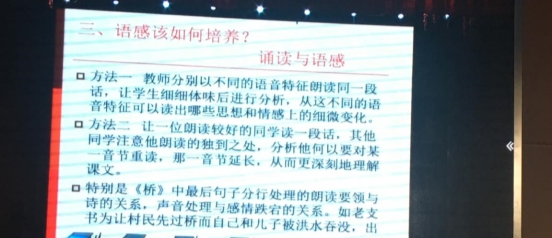 三、语感该如何培养？
诵读与语感
方法一 教师分别以不同的语音特征朗读同一段
话，让学生细细体味后进行分析，从这不同的语
音特征可以读出哪些思想和情感上的细微变化。
方法二 让一位朗读较好的同学读一段话，其他
同学注意他朗读的独到之处，分析他何以要对某
一音节重读，那一音节延长，从而更深刻地理解
课文。
特别是《桥》中最后句子分行处理的朗读要领与
诗的关系，声音处理与感情跌宕的关系。如老支
书为让村民先过桥而自己和儿子被洪水吞没，出